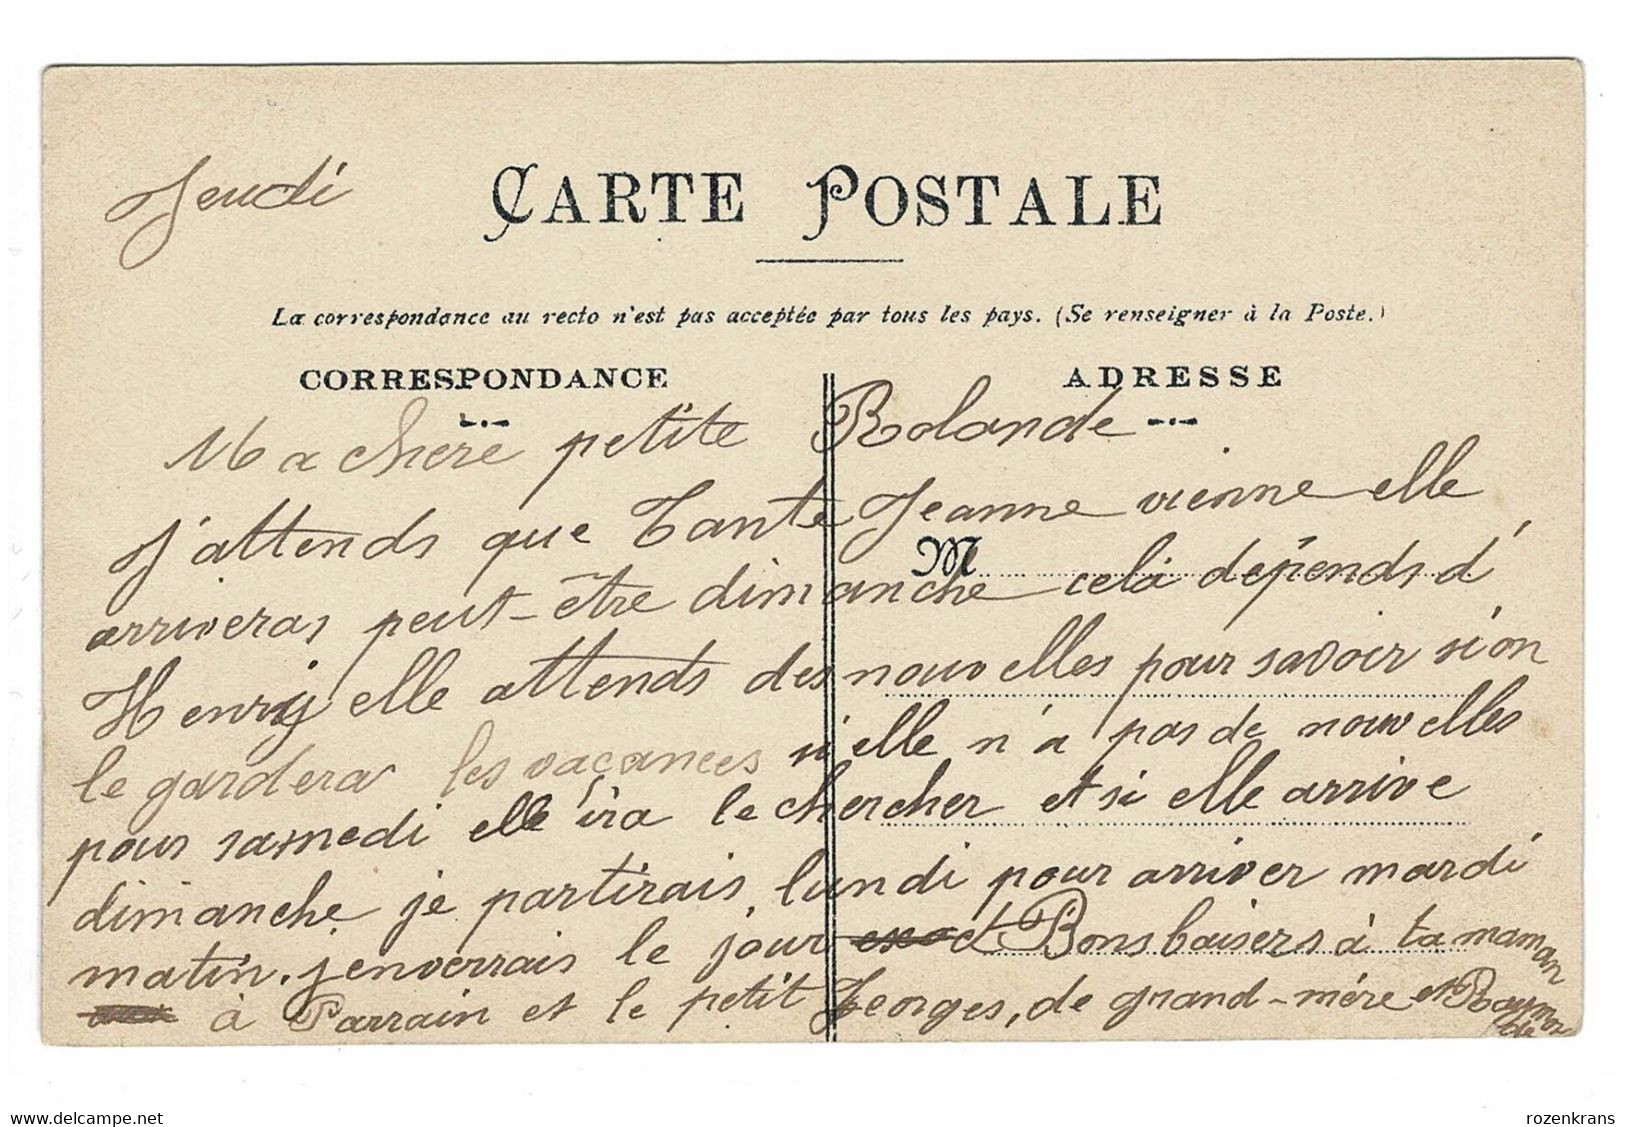 Jeudi
CARTE POSTALE
La correspondance au recto n'est pas acceptée par tous les pays. (Se renseigner à la Poste.)
CORRESPONDANCE
ADRESSE
Ma chère petite Rolande
J'attends que Tante Jeanne vienne elle
M
arriveras peut-être dimanche celà dépends d'
Henry elle attends des nouvelles pour savoir si on
le gardera les vacances si elle n'a pas de nouvelles
pour samedi elle ira le chercher et si elle arrive
dimanche je partirais lundi pour arriver mardi
matin. j'enverrais le jour exact Bons baisers à ta maman
à Parrain et le petit Georges, de grand-mère et Raymonde
www.delcampe.net
rozenkrans